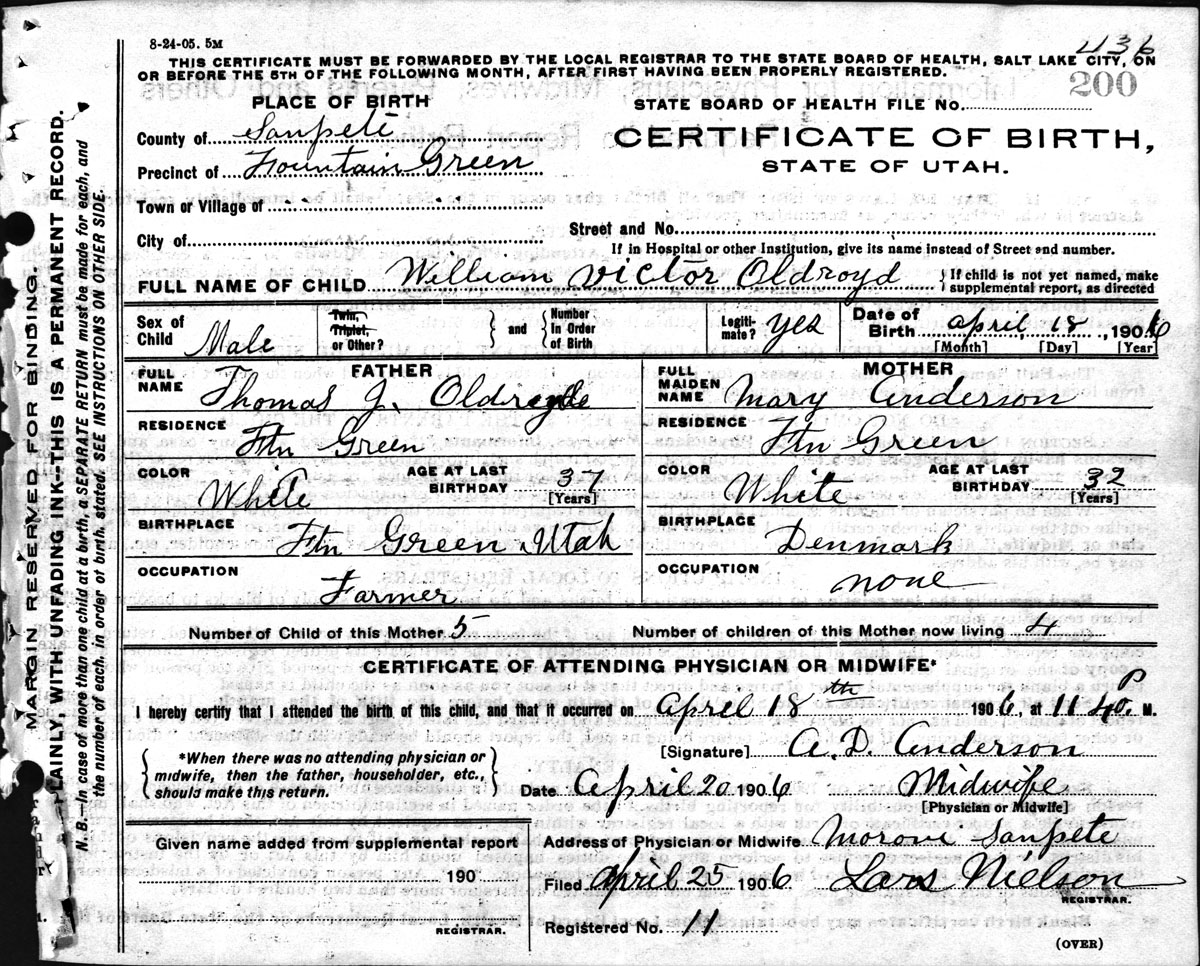 8-24-05. 5M
436
THIS CERTIFICATE MUST BE FORWARDED BY THE LOCAL REGISTRAR TO THE STATE BOARD OF HEALTH, SALT LAKE CITY, ON
OR BEFORE THE 5TH OF THE FOLLOWING MONTH, AFTER FIRST HAVING BEEN PROPERLY REGISTERED.
200
PLACE OF BIRTH
STATE BOARD OF HEALTH FILE No.
County of Sanpete
CERTIFICATE OF BIRTH,
Precinct of Fountain Green
STATE OF UTAH.
Town or Village of
City of
Street and No.
If in Hospital or other Institution, give its name instead of Street and number.
FULL NAME OF CHILD William Victor Oldroyd {If child is not yet named, make supplemental report, as directed
Sex of Child Male Twin, Triplet, or Other? } and { Number in Order of Birth Legiti-mate? yes Date of Birth April 18, 1906
[Month] [Day] [Year]
FATHER MOTHER
FULL NAME Thomas J. Oldroyd FULL MAIDEN NAME Mary Anderson
RESIDENCE Ftn Green RESIDENCE Ftn Green
COLOR White AGE AT LAST BIRTHDAY 37 [Years] COLOR White AGE AT LAST BIRTHDAY 32 [Years]
BIRTHPLACE Ftn Green Utah BIRTHPLACE Denmark
OCCUPATION Farmer OCCUPATION none
Number of Child of this Mother 5 Number of children of this Mother now living 4
CERTIFICATE OF ATTENDING PHYSICIAN OR MIDWIFE*
I hereby certify that I attended the birth of this child, and that it occurred on April 18th 1906, at 11 40 P. M.
{*When there was no attending physician or midwife, then the father, householder, etc., should make this return.}
[Signature] A. D. Anderson
Date April 20 1906 Midwife
[Physician or Midwife]
Given name added from supplemental report
Address of Physician or Midwife Moroni Sanpete
190
Filed April 25 1906 Lars Nielson
REGISTRAR.
REGISTRAR.
Registered No. 11
(OVER)
MARGIN RESERVED FOR BINDING.
PLAINLY, WITH UNFADING INK—THIS IS A PERMANENT RECORD.
N. B.—In case of more than one child at a birth, a SEPARATE RETURN must be made for each, and
the number of each, in order of birth, stated. SEE INSTRUCTIONS ON OTHER SIDE.